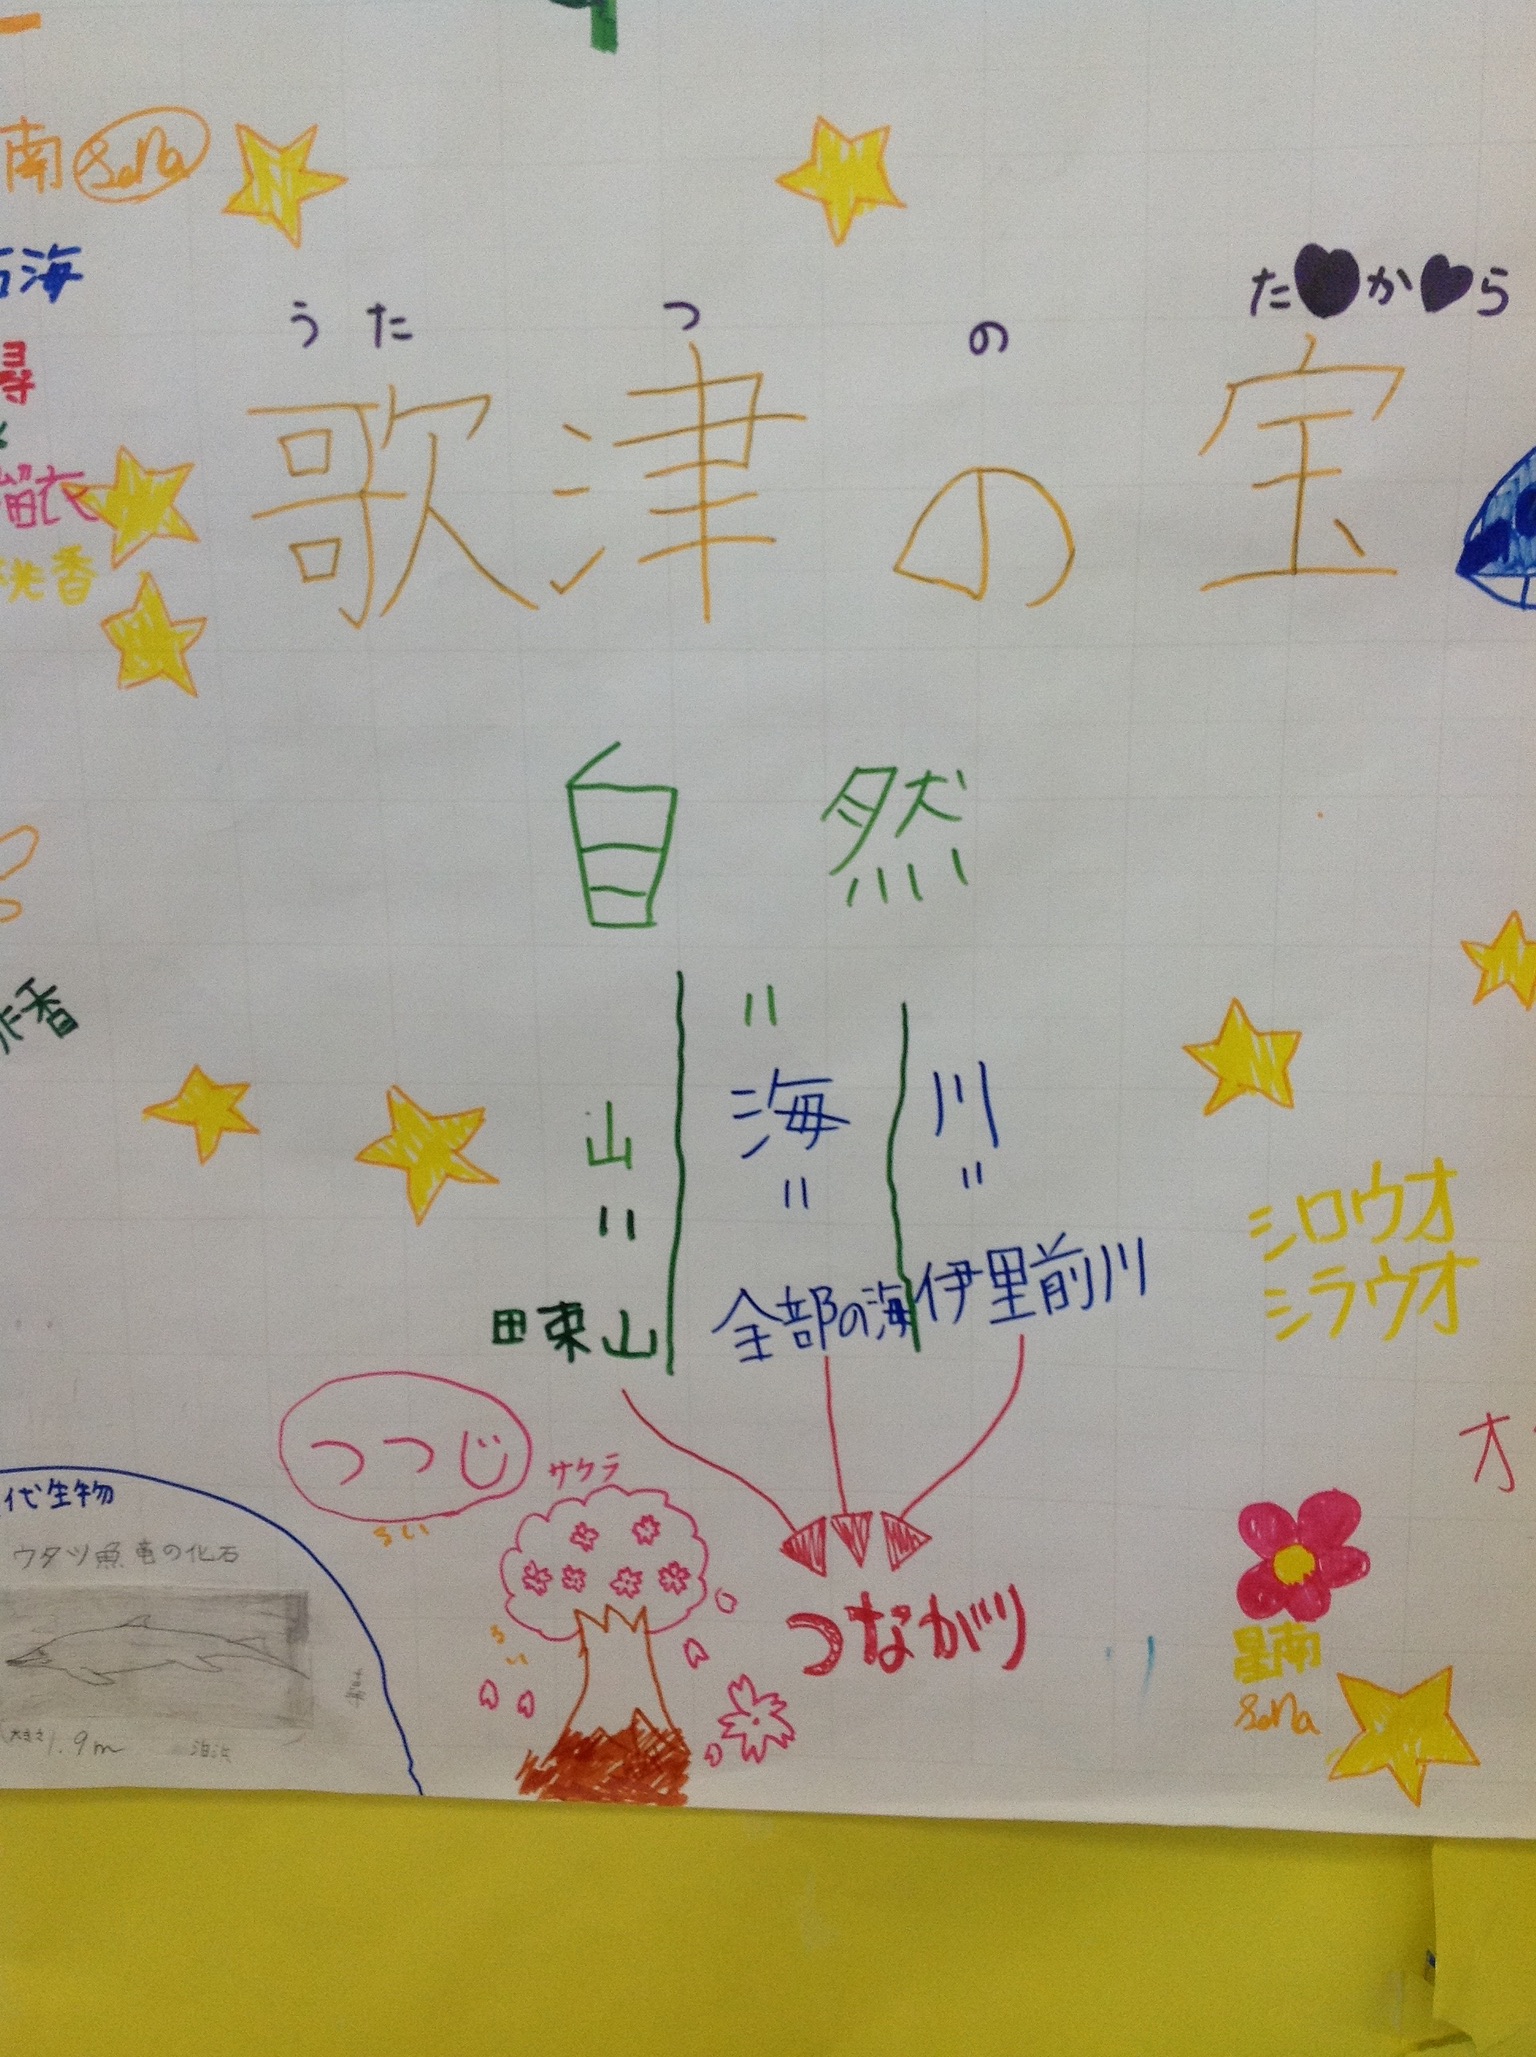 南 SeNa
海
うた つ の た か ら
歌津の宝
香
自然
香
山 海 川
田束山 全部の海 伊里前川
シロウオ
シラウオ
つつじ
サクラ
代生物
ウタツ魚竜の化石
大きさ1.9m
つながり
星南
SeNa